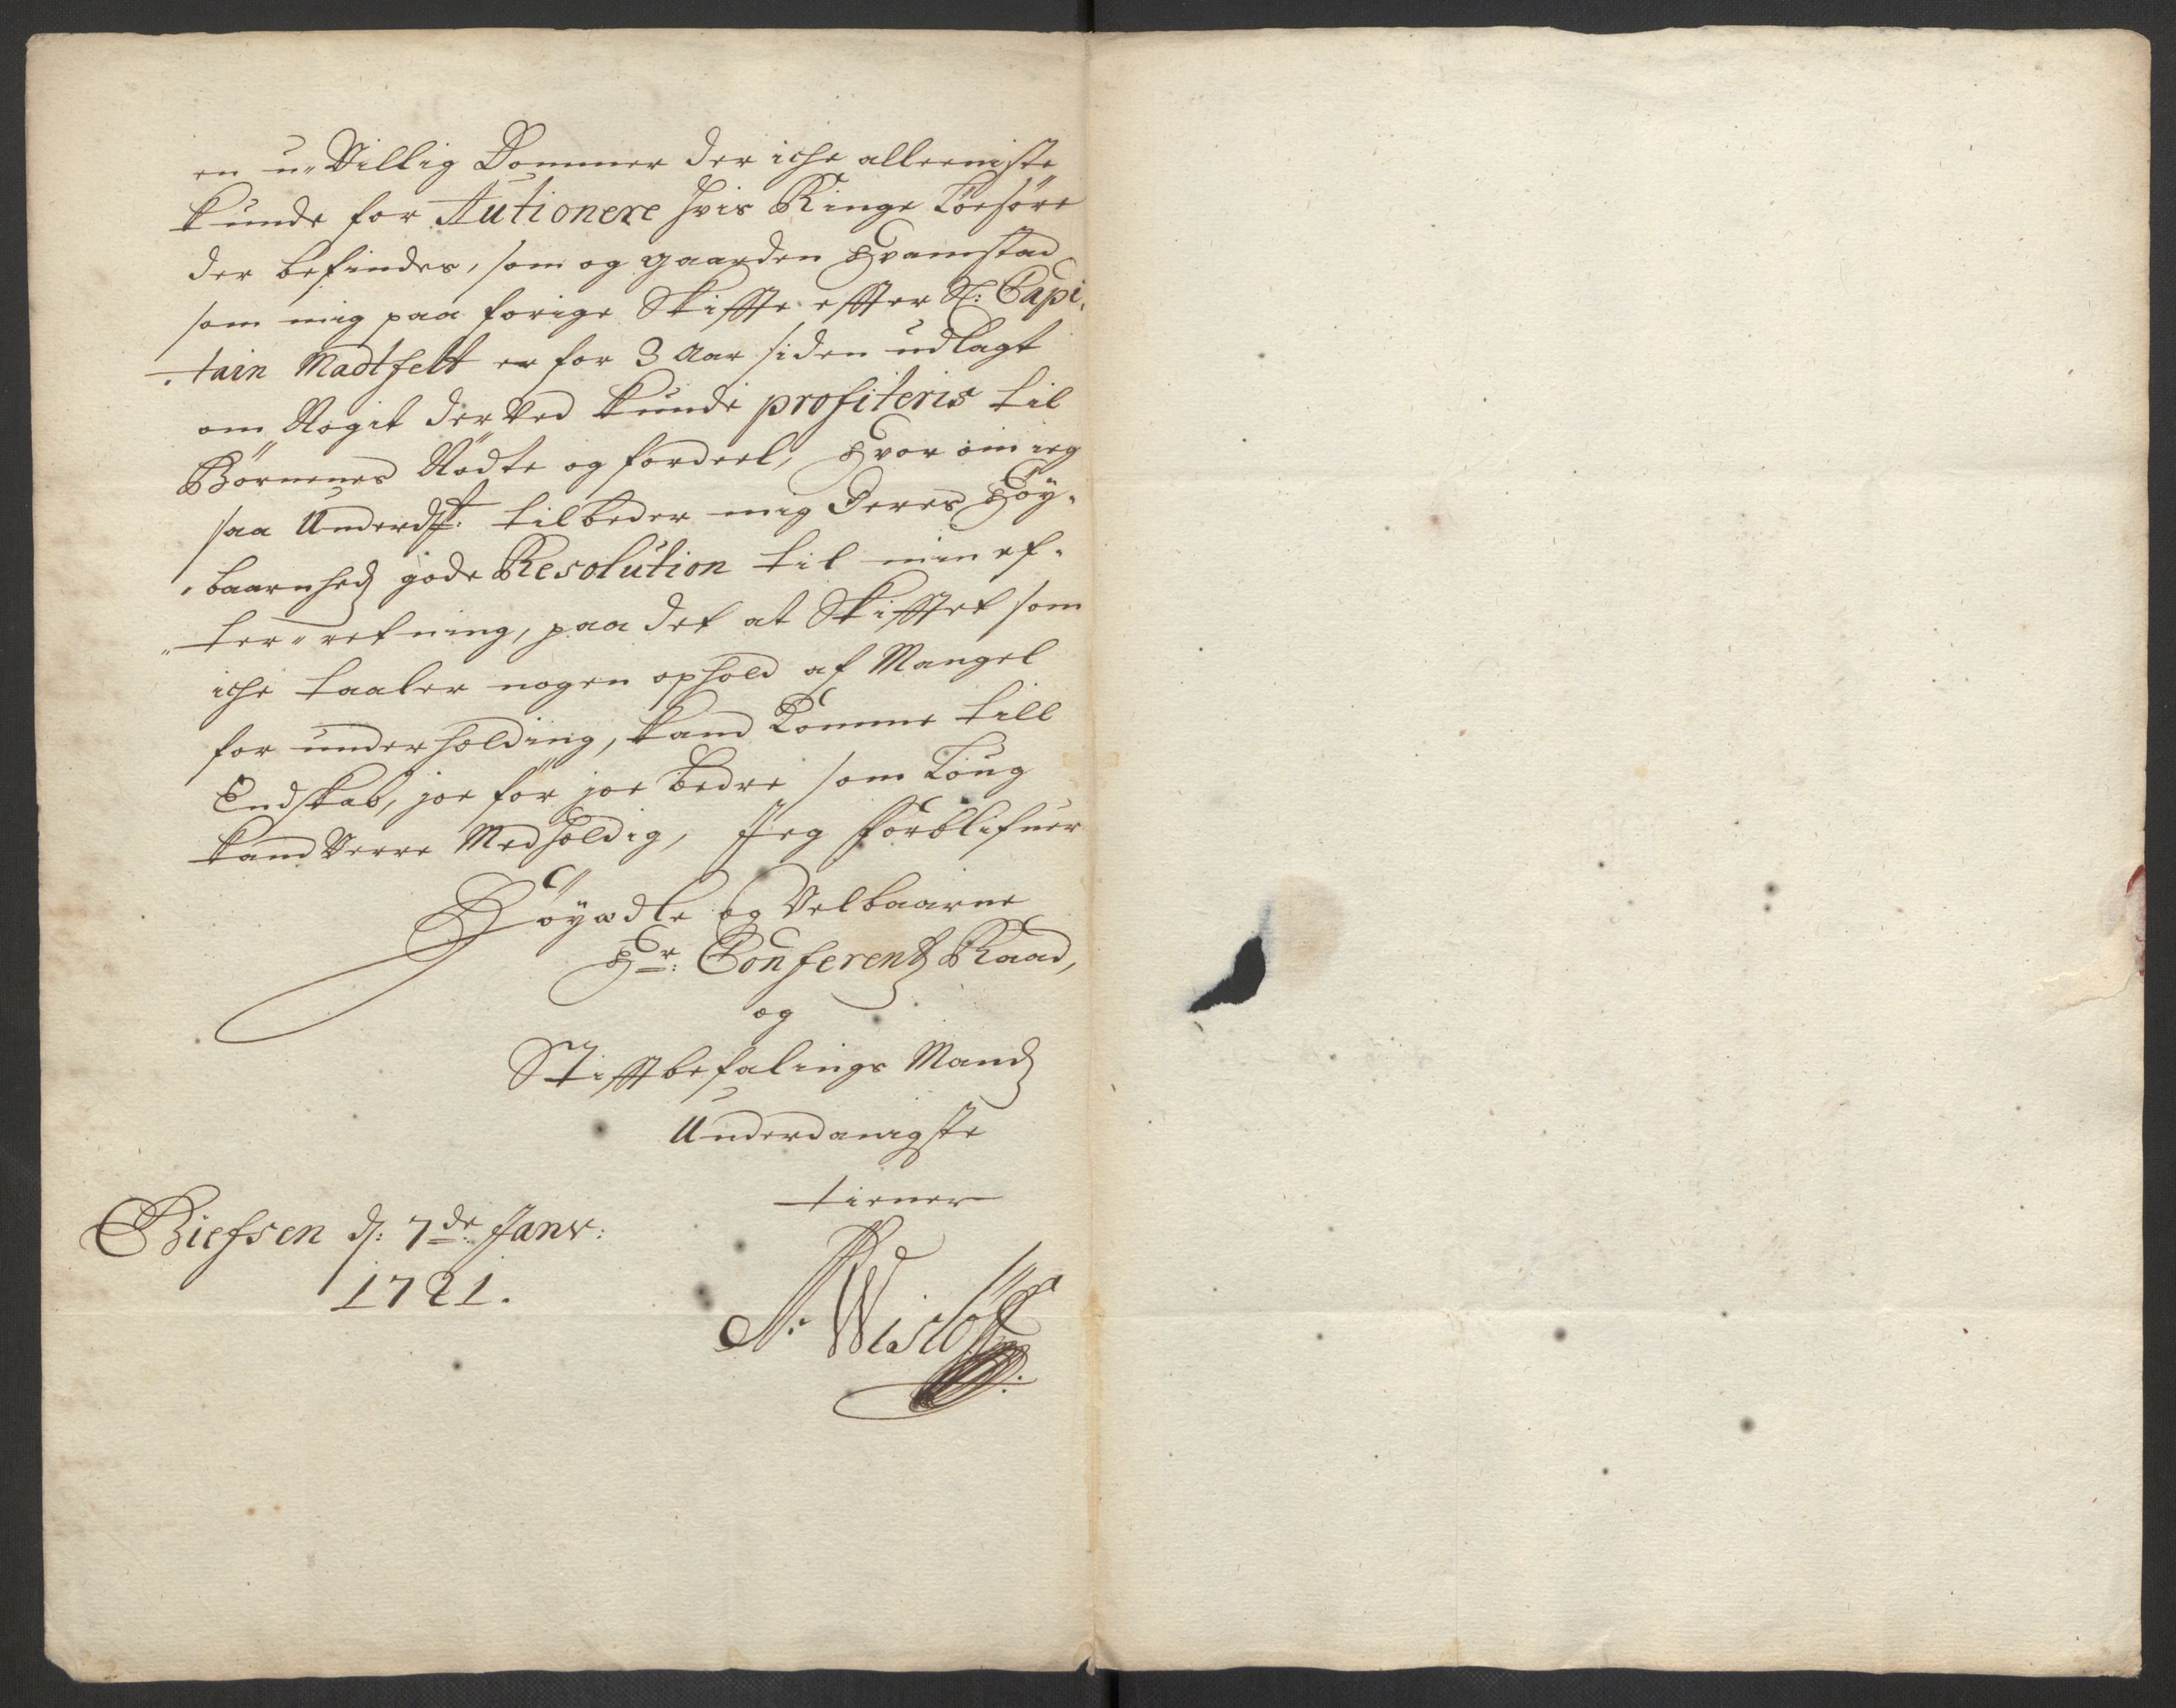 en u-Villig Dommer der iche alleeniste
kunde for Autionere hvis Ringe Löesöre
der befindes, som og gaarden Hvamstad
som mig paa forige Skiffte effter Sl: Capi-
-tain Madtfelt er for 3 Aar siden udlagt
om Nogit derved kunde profiteris til
Börnenes Nödte og fordeel, Hvor om ieg
saa Underdst: tilbeder mig Deres Höy-
-baarnhed gode Resolution til min ef-
-ter-retning, paa det at Skifftet som
iche taaler nogen ophold af Mangel
for underholding, kand komme till
Endskab, joe för joe bedre som Löug
kand Verre Medholdig, Jeg forblifuer
Höyædle og Velbaarne
Hr: Conferentz Raad,
og
Stifftbefalings Mand
Underdanigste
tiener
Biefsen d: 7de Janv:
1721.
A: Wislöff